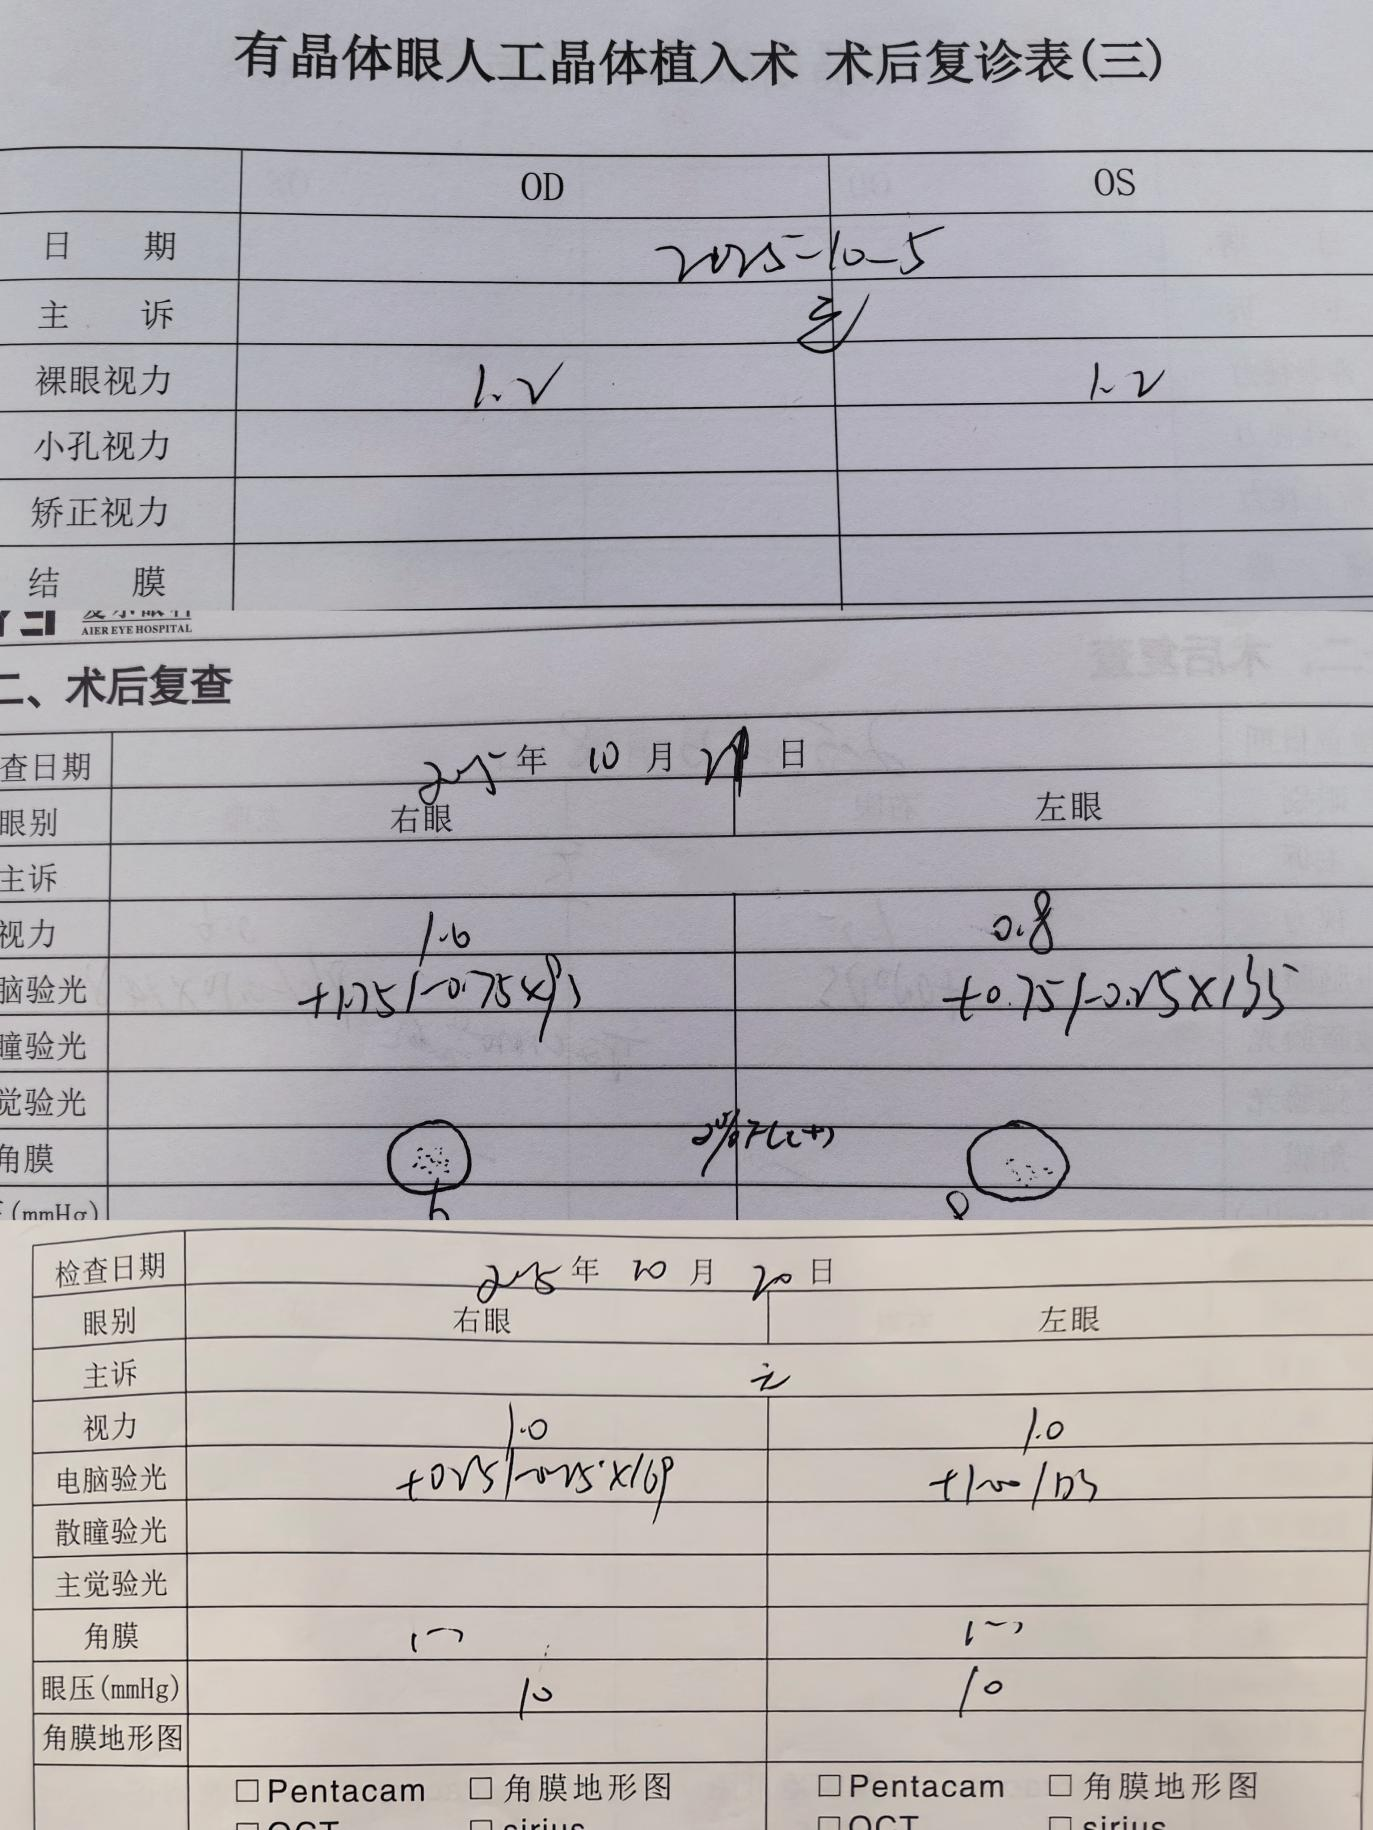 有晶体眼人工晶体植入术 术后复诊表(三)
OD OS
日 期 2025-10-5
主 诉 无
裸眼视力 1.2 1.2
小孔视力
矫正视力
结 膜
爱尔眼科
AIER EYE HOSPITAL
二、术后复查
查日期 2025年 10 月 日
眼别 右眼 左眼
主诉
视力 1.0 0.8
脑验光 +1.75/-0.75× +0.75/-0.25×135
瞳验光
觉验光
角膜
(mmHg) 8
检查日期 2025年 10 月 20 日
眼别 右眼 左眼
主诉 无
视力 1.0 1.0
电脑验光 +0.25/-0.25×169 +1.00/DS
散瞳验光
主觉验光
角膜 (-) (-)
眼压(mmHg) 10 10
角膜地形图
□Pentacam □角膜地形图 □Pentacam □角膜地形图
□OCT □sirius □OCT □sirius